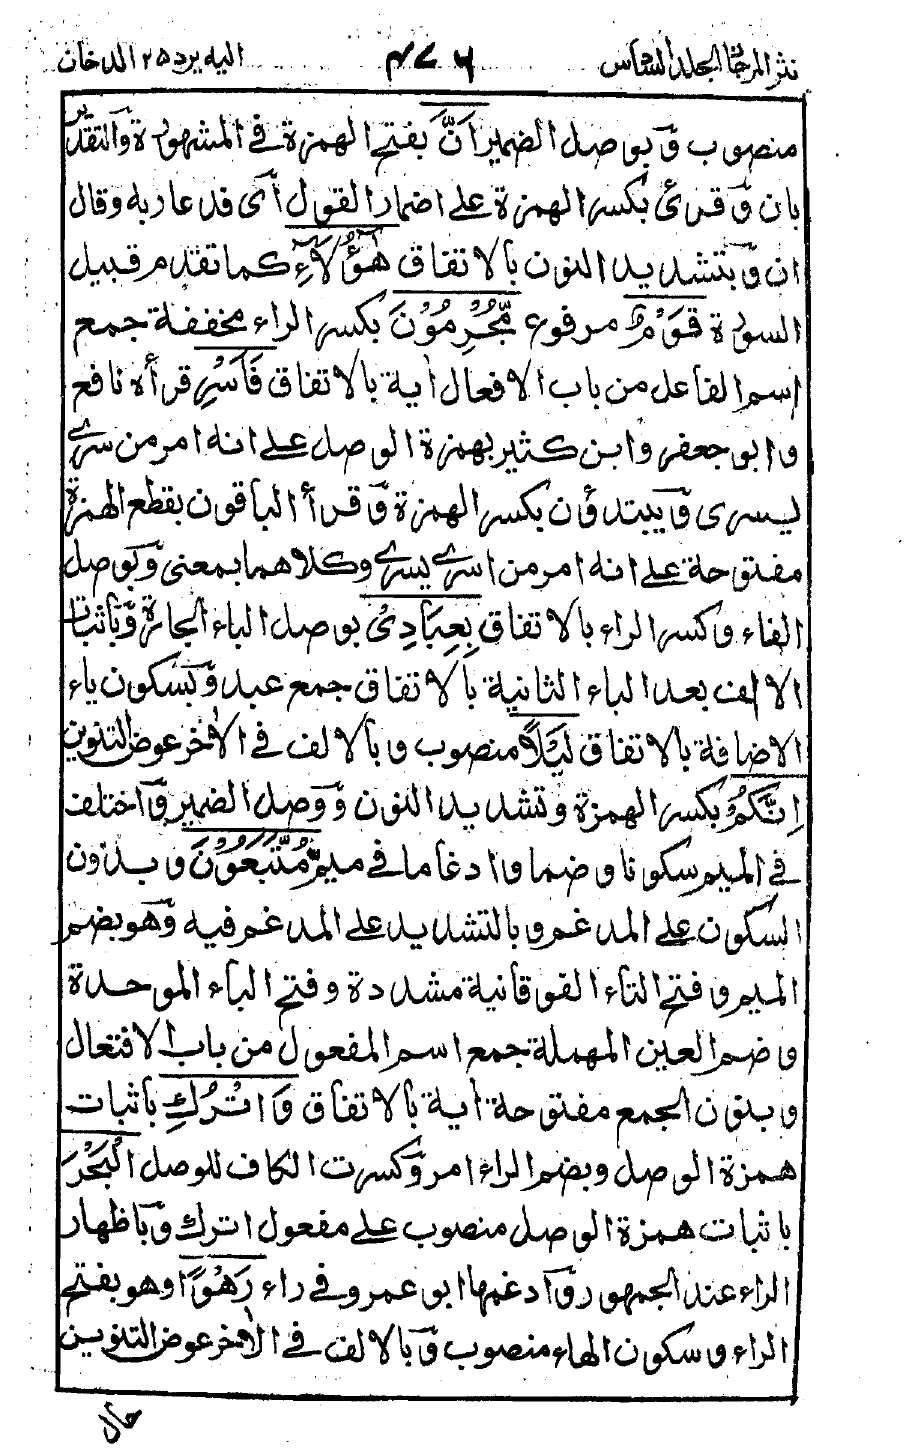 نثر المرجان المجلد السادس ٤٧٦ اليه يرد ٢٥ الدخان
منصوب و بوصل الضمير أَنَّ بفتح الهمزة في المشهورة والتقدير
بان و قرئ بكسر الهمزة على اضمار القول أي فدعا ربه وقال
ان و بتشديد النون بالاتفاق هٰٓؤُلَآءِ كما تقدم قبيل
السورة قَوْمٌ مرفوع مُّجْرِمُوْنَ بكسر الراء مخففة جمع
اسم الفاعل من باب الافعال اٰية بالاتفاق فَاَسْرِ قرأه نافع
و ابو جعفر و ابن كثير بهمزة الوصل على انه امر من سرے
يسرى و يبتدؤن بكسر الهمزة و قرأ الباقون بقطع الهمزة
مفتوحة على انه امر من اسرے يسرے وكلاهما بمعنى و بوصل
الفاء و كسر الراء بالاتفاق بِعِبَادِىْ بوصل الباء الجارة و باثبات
الالف بعد الباء الثانية بالاتفاق جمع عبد و بسكون ياء
الاضافة بالاتفاق لَيْلًا منصوب و بالالف في الاٰخر عوض التنوين
اِنَّكُمْ بكسر الهمزة و تشديد النون و وصل الضمير و اختلف
في الميم سكونا و ضما و ادغاما في ميم مُّتَّبَعُوْنَ و بدون
السكون على المدغم و بالتشديد على المدغم فيه و هو بضم
الميم و فتح التاء الفوقانية مشددة و فتح الباء الموحدة
و ضم العين المهملة جمع اسم المفعول من باب الافتعال
و بنون الجمع مفتوحة اٰية بالاتفاق وَاتْرُكِ باثبات
همزة الوصل و بضم الراء امر و كسرت الكاف للوصل الْبَحْرَ
باثبات همزة الوصل منصوب على مفعول اترك و باظهار
الراء عند الجمهور و ادغمها ابو عمرو في راء رَهْوًا و هو بفتح
الراء و سكون الهاء منصوب و بالالف في الاٰخر عوض التنوين
حال